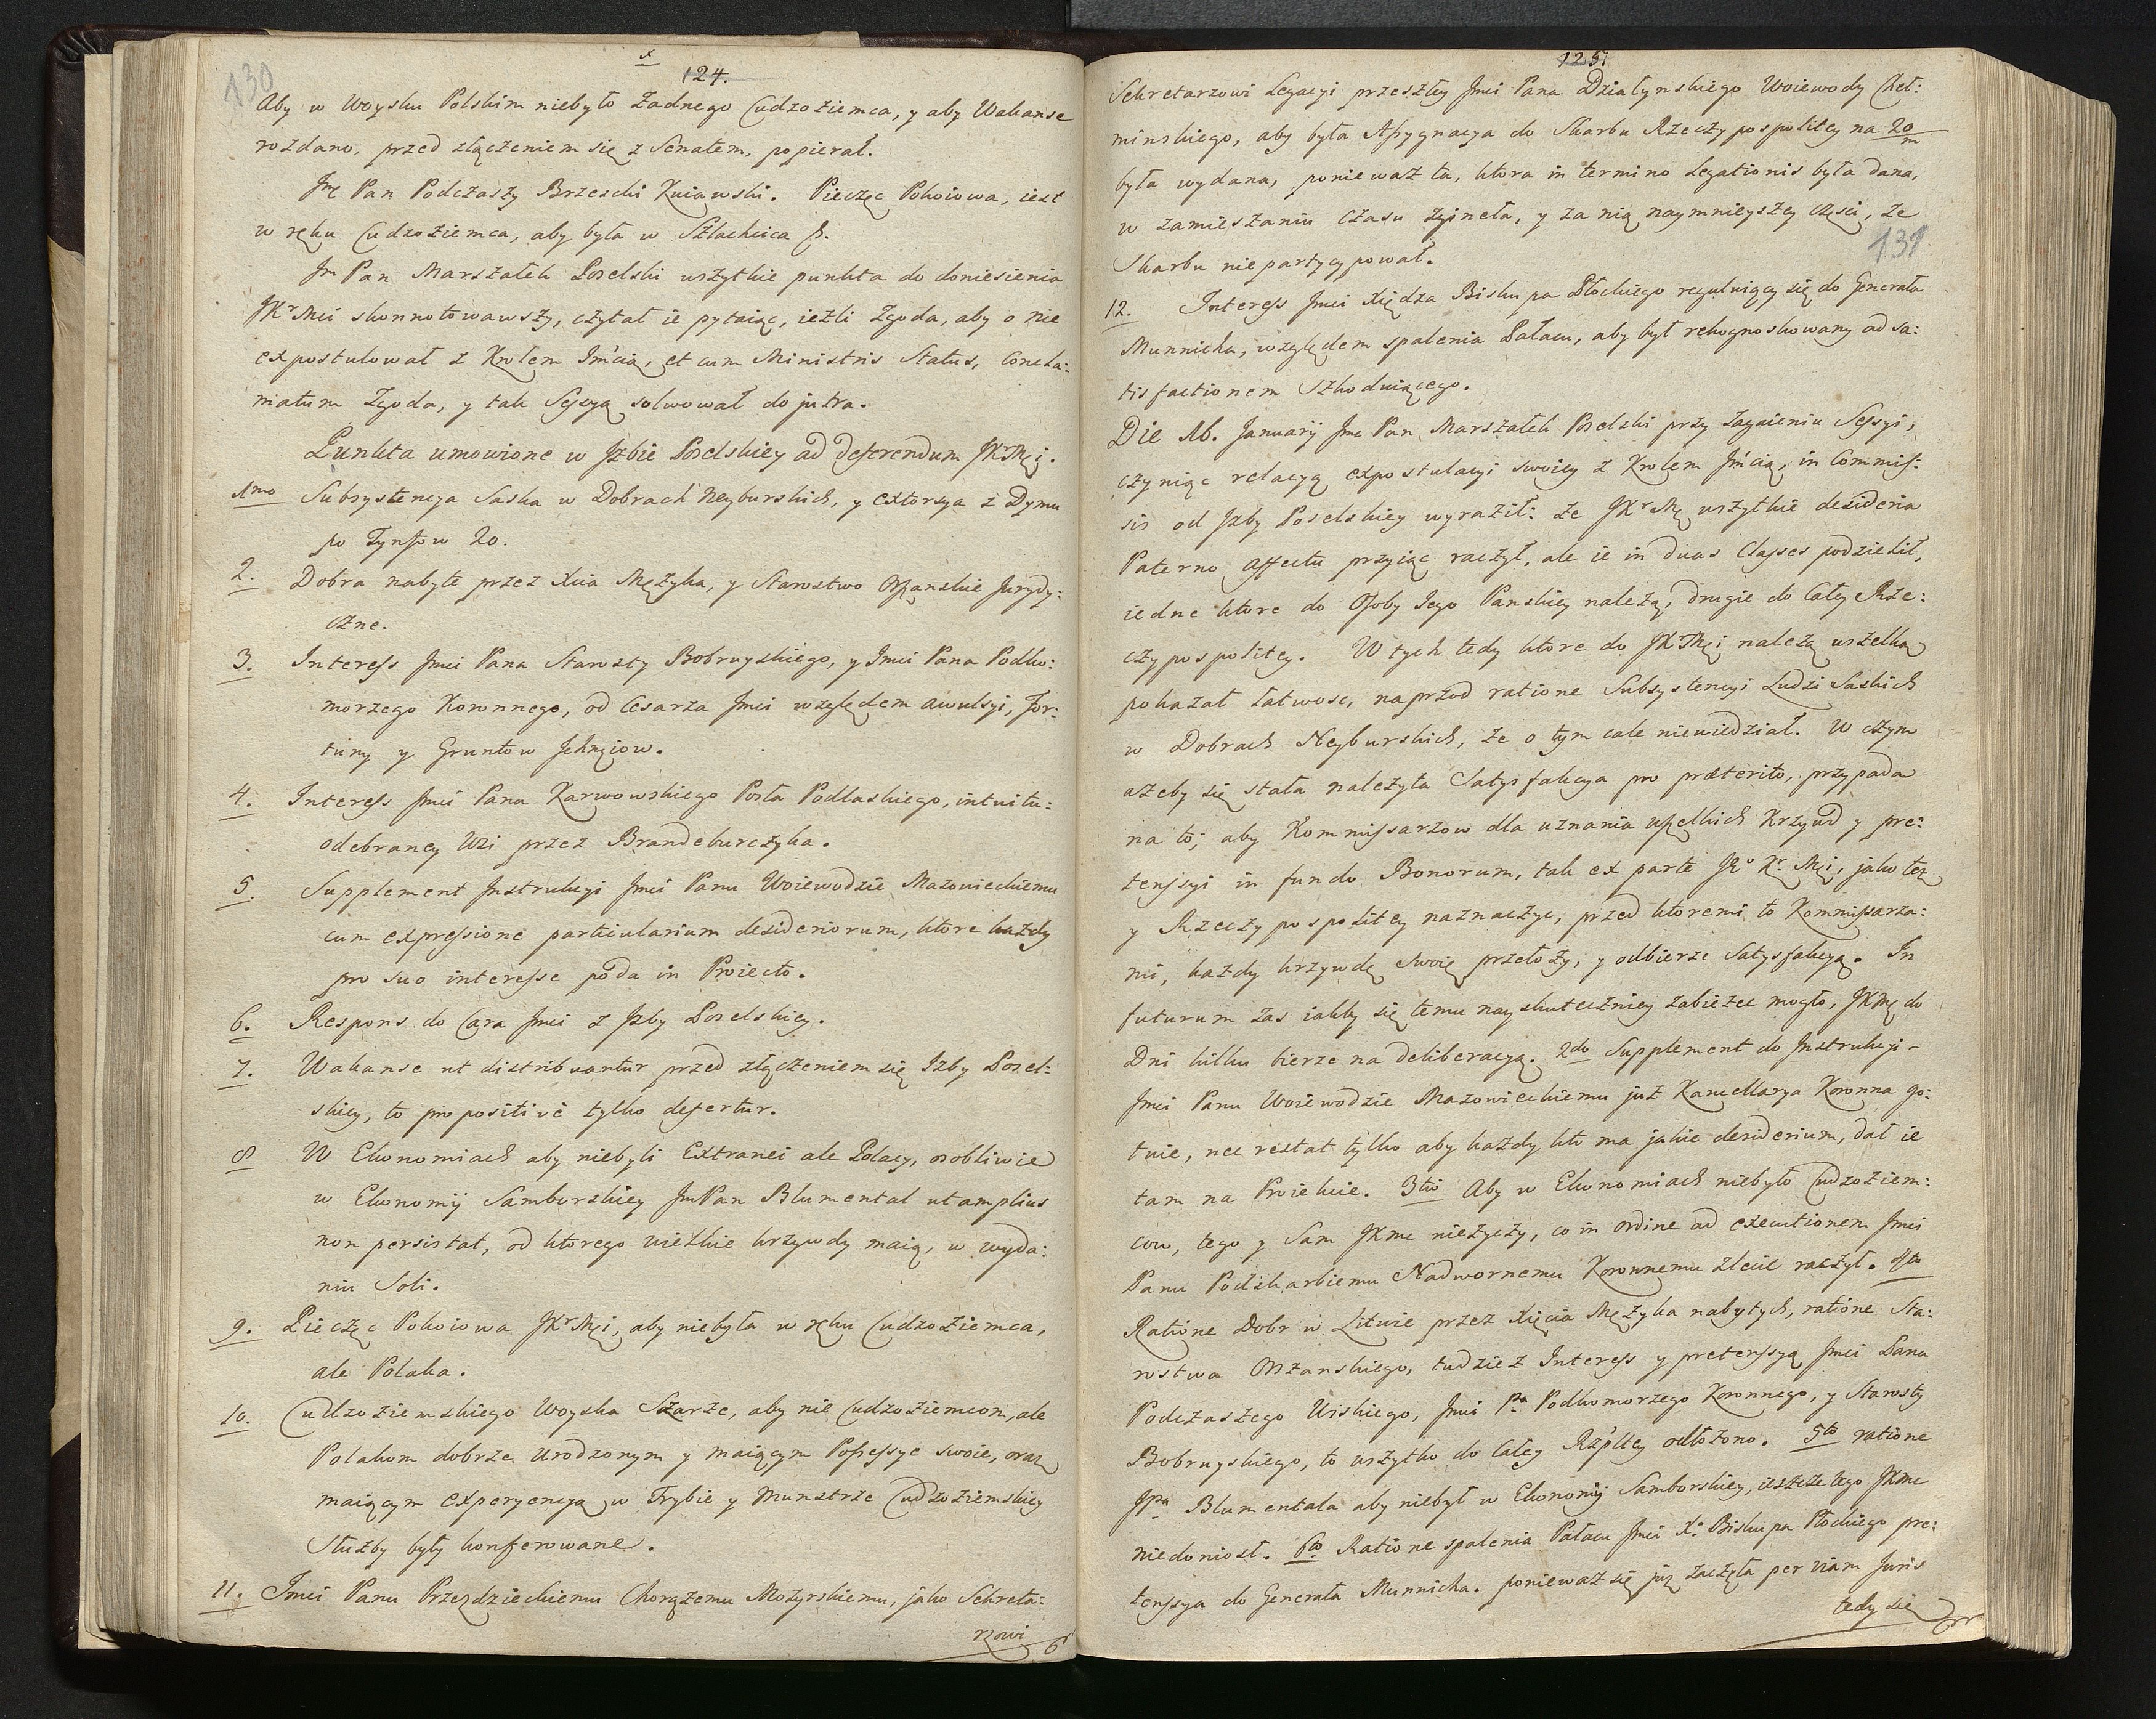 130
x
124.
Aby w Woysku Polskim niebyło Żadnego Cudzoziemca, y aby Wakanse
rozdano, przed złączeniem się z Senatem, popierał.
Jmę Pan Podczaszy Brzeski Kuiawski. Pieczęc Pokoiowa, iest
w ręku Cudzoziemca, aby była w Szlachcica
Jm Pan Marszałek Poselski wszytkie punkta do doniesienia
JKrMci skonnotowawszy, czytał ie pytaiąc, ieżli Zgoda, aby o nie
expostulował z Krolem Jmcią, et cum Ministris Status, Concla:
matum Zgoda, y tak Sessyą solwował do jutra.
Punkta umowione w Jzbie Poselskiey ad deferendum JKrMci.
1mo Subsystencya Saska w Dobrach Neyburskich, y extorsya z Dymu
po Tynfow 20.
2. Dobra nabyte przez Xcia Mężyka, y Starostwo Orszanskie Jurydy:
czne.
3. Interess Jmci Pana Starosty Bobruyskiego, y Jmci Pana Podko:
morzego Koronnego, od Cesarza Jmci względem awulsyi, For:
tuny y Gruntow Jchmciow.
4. Interess Jmci Pana Karwowskiego Posła Podlaskiego, intuitu:
odebraney Wsi przez Brandeburczyka.
5. Supplement Instrukcyi Jmci Panu Woiewodzie Mazowieckiemu
cum expressione particularium desideriorum, ktore każdy
pro suo interesse poda in Proiecto.
6. Respons do Cara Jmci z Jzby Poselskiey.
7. Wakanse ut distribuantur przed złączeniem się Izby Posel:
skiey, to propositivè tylko defertur.
8 W Ekonomiach aby niebyli Extranei ale Polacy, osobliwie
w Ekonomij Samborskiey JmPan Blumental ut amplius
non persistat, od ktorego wielkie krzywdy maią, w wyda:
niu Soli.
9. Pieczęc Pokoiowa JKrMci, aby niebyła w ręku Cudzoziemca,
ale Polaka.
10. Cudzoziemskiego Woyska Szarże, aby nie Cudzoziemcom, ale
Polakom dobrze urodzonym y maiącym Possessye swoie, oraz
maiącym experyencyą w Trybie y Munstrze Cudzoziemskiey
Służby były konferowane.
11. Jmci Panu Przezdzieckiemu Chorążemu Mozyrskiemu, jako Sekreta:
rzowi
125.
Sekretarzowi Legacyi przeszłey Jmci Pana Działynskiego Woiewody Cheł:
minskiego, aby była Assygnacya do Skarbu Rzeczypospolitey na 20/m
była wydana, poniewaz ta, ktora in termino Legationis była dana,
w zamieszaniu Czasu zgineła, y za nią naymnieyszey części, ze
131
Skarbu niepartycypował.
12. Interess Jmci Xiędza Biskupa Płockiego reguluiący się do Generała
Munnicha, względem spalenia Pałacu, aby był rekognoskowany ad sa:
tisfactionem Szkoduiącego.
Die 16. Januarij Jmc Pan Marszałek Poselski przy zagaieniu Sessyi,
czyniąc relacyą expostulacyi swoiey z Krolem Jmcią, in Commis:
sis od Jzby Poselskiey wyraził: że JKrMć wszytkie desideria
Paterno affectu przyiąc raczył, ale ie in duas Classes podzielił,
iedne ktore do Osoby Jego Panskiey należą, drugie do Całey Rze:
czypospolitey. W tych tedy ktore do JKrMci należą wszelką
pokazał łatwosc, naprzod ratione Subsystencyi Ludzi Saskich
w Dobrach Neyburskich, że o tym cale niewiedział. W czym
ażeby się stała należyta Satysfakcya pro præterito, przypada
na to, aby Kommissarzow dla uznania wszelkich Krzywd y pre:
tensyi in fundo Bonorum, tak ex parte Jo Kr Mci, jako też
y Rzeczypospolitey naznaczyc, przed ktoremi to Kommissarza:
mi, każdy krzywdę swoię przełoży, y odbierze Satysfakcyą. In
futurum zas iakby się temu nayskuteczniey zabieżec mogło, JKMć do
Dni kilku bierze na deliberacyą. 2do Supplement do Instrukcyi-
Jmci Panu Woiewodzie Mazowieckiemu już Kancellarya Koronna go:
tuie, nec restat tylko aby każdy kto ma jakie desiderium, dał ie
tam na Proiekcie. 3tio Aby w Ekonomiach niebyło Cudzoziem:
cow, tego y Sam JKmc nieżyczy, co in ordine ad executionem Jmci
Panu Podskarbiemu Nadwornemu Koronnemu zlecic raczył. 4to
Ratione Dobr w Litwie przez Xięcia Mężyka nabytych, ratione Sta:
rostwa Orszanskiego, tudziez Interess y pretensyą Jmci Pana
Podczaszego Wiskiego, Jmci Pa Podkomorzego Koronnego, y Starosty
Bobruyskiego, to wszytko do Całey Rzpltey odłożono. 5to ratione
JPa Blumentala aby niebył w Ekonomij Samborskiey, ieszcze tego JKmc
niedoniosł. 6to Ratione spalenia Pałacu Jmci Xa Biskupa Płockiego pre:
tensya do Generała Munnicha. ponieważ się już zaczęła per viam Juris
tedy się